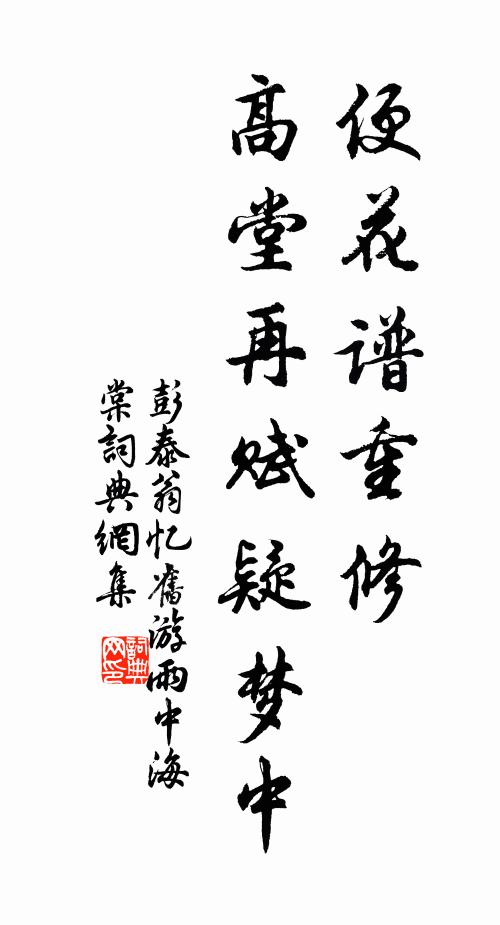 便花谱重修
高堂再赋疑梦中
彭泰翁忆舊游雨中海
棠詞典網集
詞典
网印